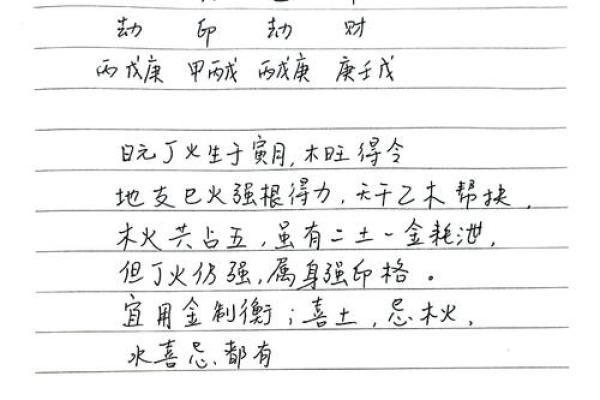 劫 印 劫 财
丙戊庚 甲丙戊 丙戊庚 庚壬戊
日元丁火生于寅月,木旺得令
地支巳火强根得力,天干乙木帮扶,
木火共占五,虽有二土一金耗泄,
但丁火仍强,属身强印格。
宜用金制衡;喜土,忌木火,
水喜忌、都有